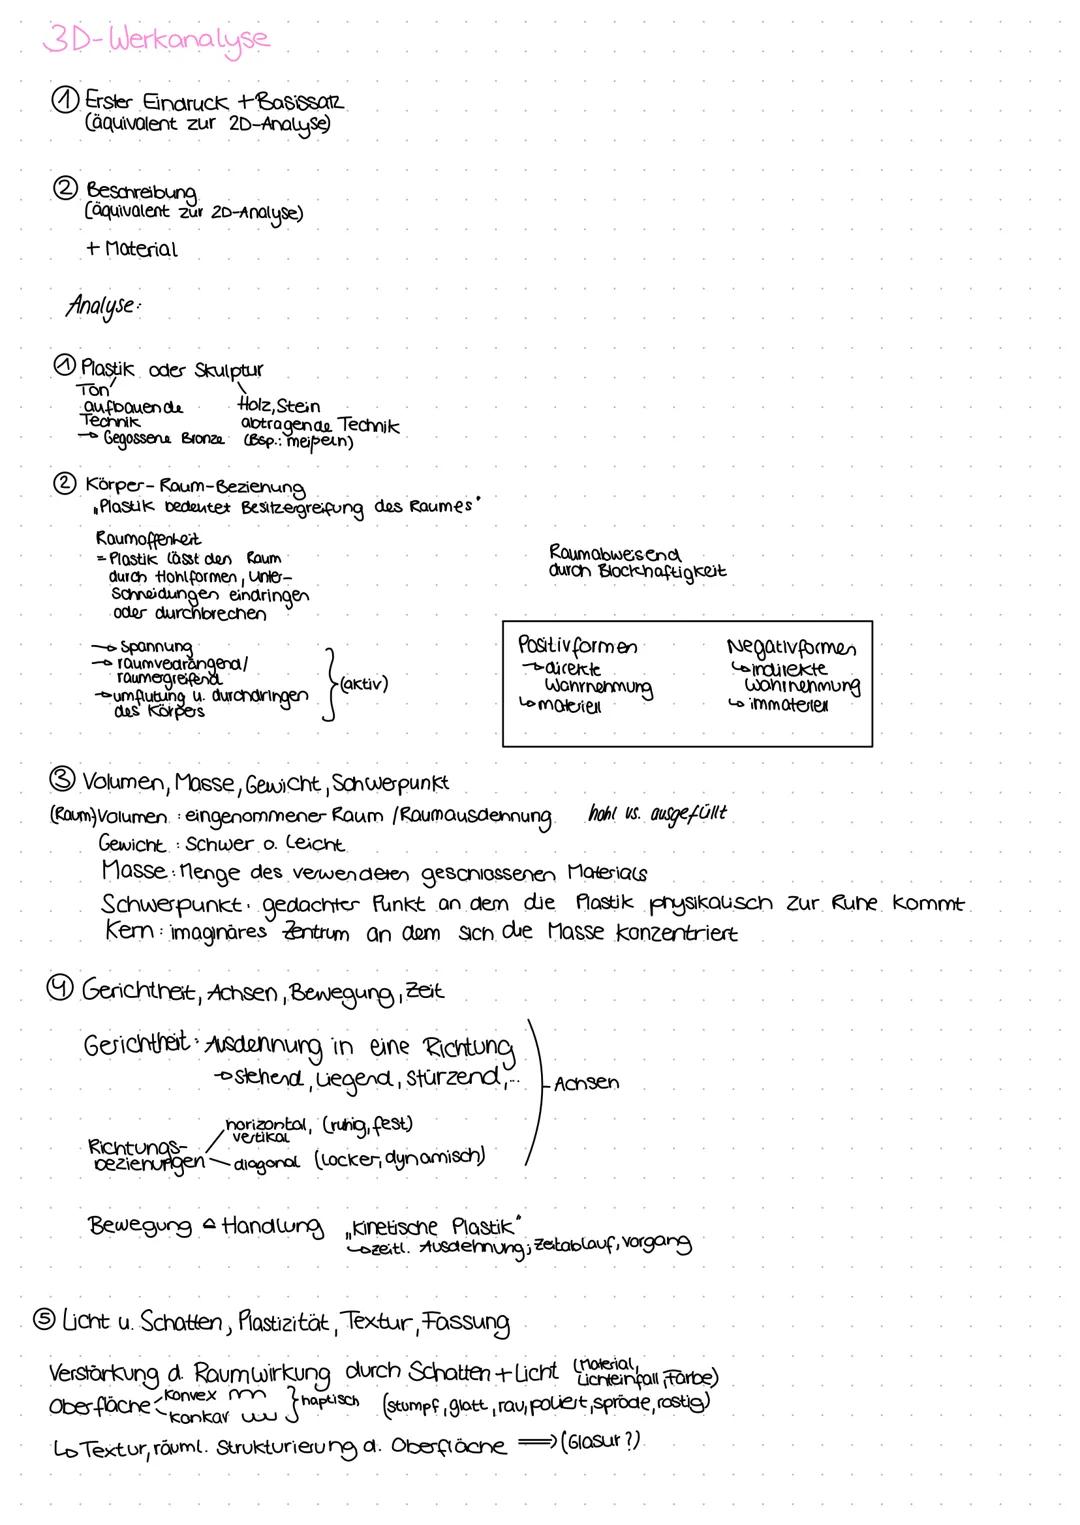 3D-Werkanalyse
① Erster Eindruck + Basissatz
(äquivalent zur 2D-Analyse)
② Beschreibung
(äquivalent zur 2D-Analyse)
+ Material
Analyse:
① Plastik oder Skulptur
Ton
aufbauende
Technik
→ Gegossene Bronze
Holz, Stein
abtragende Technik
(Bsp.: meißeln)
② Körper-Raum-Beziehung
„Plastik bedeutet Besitzergreifung des Raumes"
Raumoffenheit
= Plastik lässt den Raum
durch Hohlformen, Unter-
schneidungen eindringen
oder durchbrechen
Raumabweisend
durch Blockhaftigkeit
→ Spannung
→ raumverdrängend/
raumergreifend
→ umflutung u. durchdringen
des Körpers
(aktiv)
Positivformen
→ direkte
Wahrnehmung
↳ materiell
Negativformen
↳ indirekte
Wahrnehmung
↳ immateriell
③ Volumen, Masse, Gewicht, Schwerpunkt
(Raum)Volumen : eingenommener Raum / Raumausdehnung hohl vs. ausgefüllt
Gewicht : Schwer o. Leicht
Masse : Menge des verwendeten geschlossenen Materials
Schwerpunkt : gedachter Punkt an dem die Plastik physikalisch zur Ruhe kommt
Kern : imaginäres Zentrum an dem sich die Masse konzentriert
④ Gerichtheit, Achsen, Bewegung, Zeit
Gerichtheit : Ausdehnung in eine Richtung
→ stehend, Liegend, stürzend,..
Achsen
Richtungs-
beziehungen
horizontal, (ruhig, fest)
vertikal
diagonal (locker, dynamisch)
Bewegung ≙ Handlung „kinetische Plastik"
↳ zeitl. Ausdehnung; Zeitablauf, vorgang
⑤ Licht u. Schatten, Plastizität, Textur, Fassung
Verstärkung d. Raumwirkung durch Schatten + Licht (Material,
Lichteinfall, Farbe)
Oberfläche konvex
konkav
haptisch (stumpf, glatt, rau, poliert, spröde, rostig)
↳ Textur, räuml. Strukturierung d. Oberfläche ⟹ (Glasur?)